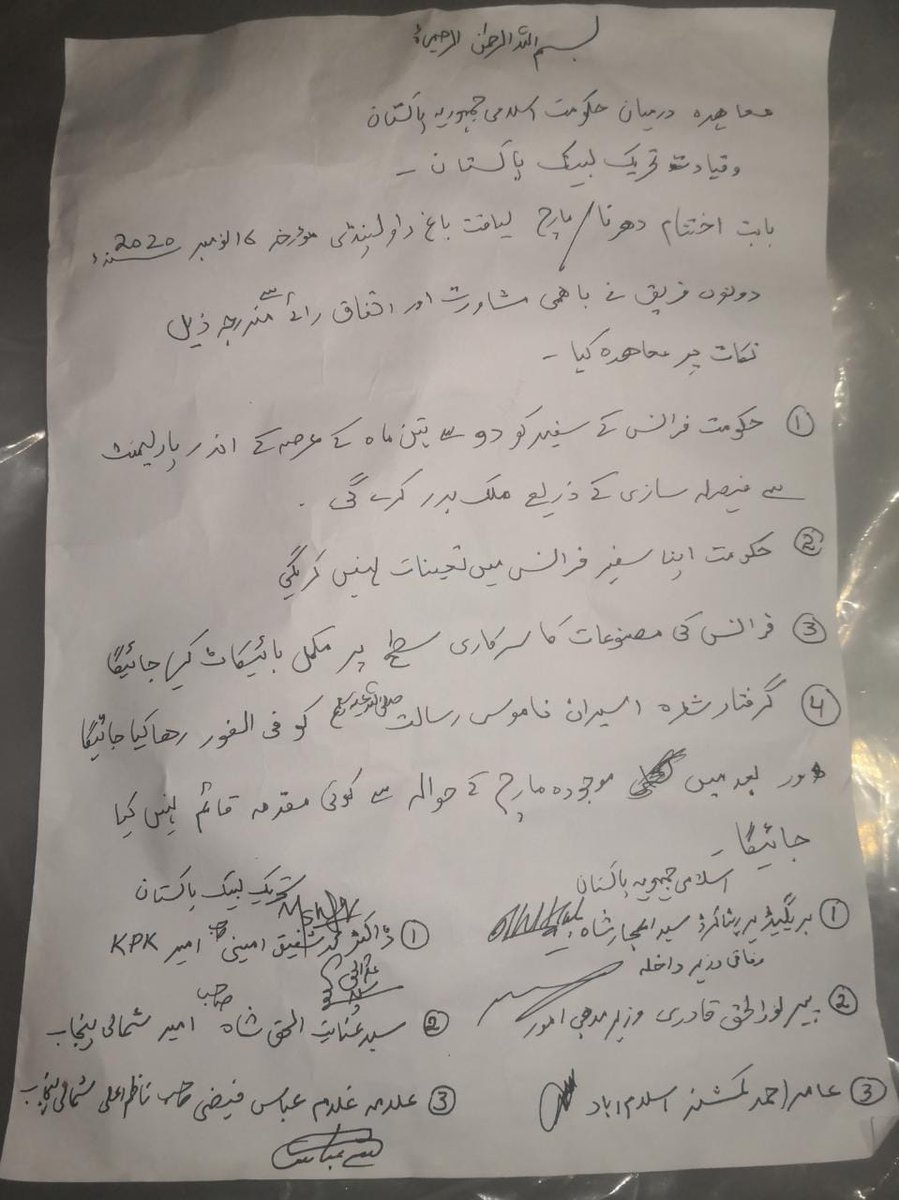 بسم اللہ الرحمٰن الرحیم
معاہدہ درمیان حکومت اسلامی جمہوریہ پاکستان
وقیادت تحریک لبیک پاکستان -
بابت اختتام دھرنا/مارچ لیاقت باغ راولپنڈی مؤرخہ 16 نومبر 2020ء
دونوں فریق نے باھمی مشاورت اور اتفاق رائے سے مندرجہ ذیل
نکات پر معاھدہ کیا -
① حکومت فرانس کے سفیر کو دو سے تین ماہ کے عرصہ کے اندر پارلیمنٹ
سے فیصلہ سازی کے ذریعے ملک بدر کرے گی .
② حکومت اپنا سفیر فرانس میں تعینات نہیں کریگی
③ فرانس کی مصنوعات کا سرکاری سطح پر مکمل بائیکاٹ کیا جائیگا
④ گرفتار شدہ اسیران ناموس رسالت صلی اللہ علیہ وسلم کو فی الفور رھا کیا جائیگا
اور بعد میں موجودہ مارچ کے حوالہ سے کوئی مقدمہ قائم نہیں کیا
جائیگا -
اسلامی جمہوریہ پاکستان
① بریگیڈیر ریٹائرڈ سید اعجاز شاہ
وفاقی وزیر داخلہ
② پیر نورالحق قادری وزیر مذھبی امور
③ عامر احمد کمشنر اسلام آباد
تحریک لبیک پاکستان
① ڈاکٹر محمد شفیق امینی صاحب امیر KPK
② سید عنایت الحق شاہ صاحب امیر شمالی پنجاب
③ علامہ غلام عباس فیضی صاحب ناظم اعلی شمالی پنجاب